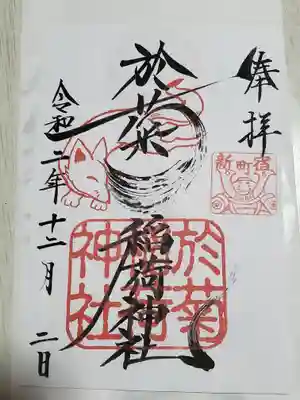 奉拝
新町宿
於菊稲荷神社
於菊稲荷神社
令和二年十二月二日